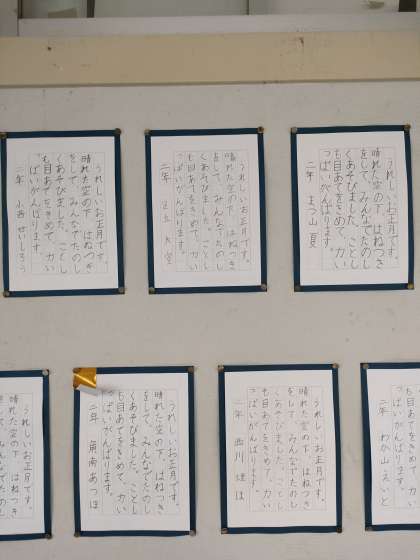 うれしいお正月です。
晴れた空の下　はねつき
をして、みんなでたのし
くあそびました。ことし
も目あてをきめて、力い
っぱいがんばります。
二年　まつ山　夏
うれしいお正月です。
晴れた空の下　はねつき
をして、みんなでたのし
くあそびました。ことし
も目あてをきめて、力い
っぱいがんばります。
二年
うれしいお正月です。
晴れた空の下　はねつき
をして、みんなでたのし
くあそびました。ことし
も目あてをきめて、力い
っぱいがんばります。
二年　小西　せいしろう
も目あてをきめて、力い
っぱいがんばります。
二年　わか山　えいと
うれしいお正月です。
晴れた空の下　はねつき
をして、みんなでたのし
くあそびました。ことし
も目あてをきめて、力い
っぱいがんばります。
二年　西川
うれしいお正月です。
晴れた空の下　はねつき
をして、みんなでたのし
くあそびました。ことし
も目あてをきめて、力い
っぱいがんばります。
二年　あつほ
うれしいお正月です。
晴れた空の下　はねつき
をして、みんなでたのし